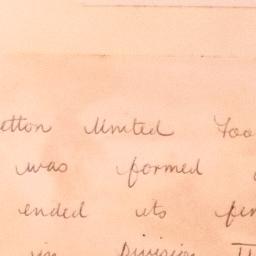 etton United Foo
was formed
ended its fir
in Division II